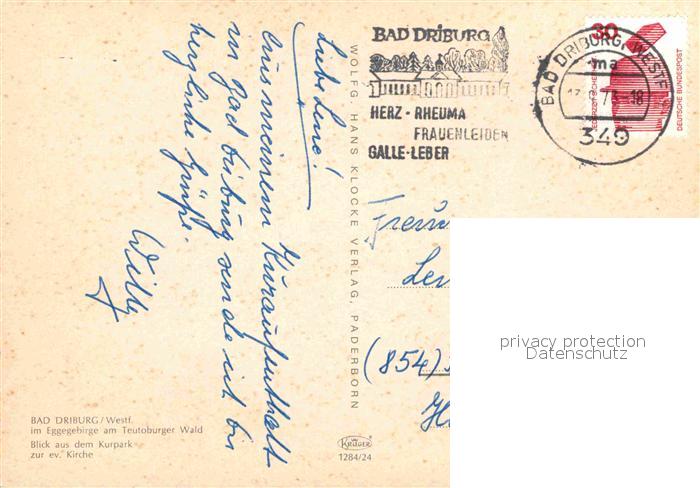 Liebe Lene!
Aus meinem Kuraufenthalt
in Bad Driburg sende ich
herzliche Grüße.
Willy
BAD DRIBURG/Westf.
im Eggegebirge am Teutoburger Wald
Blick aus dem Kurpark
zur ev. Kirche
WOLFG. HANS KLOCKE VERLAG, PADERBORN
KRÜGER
1284/24
BAD DRIBURG
HERZ-RHEUMA
FRAUENLEIDEN
GALLE-LEBER
BAD DRIBURG, WESTF
ma
18
349
30
DEUTSCHE BUNDESPOST
JEDERZEIT SICHERHEIT
(854)
privacy protection
Datenschutz